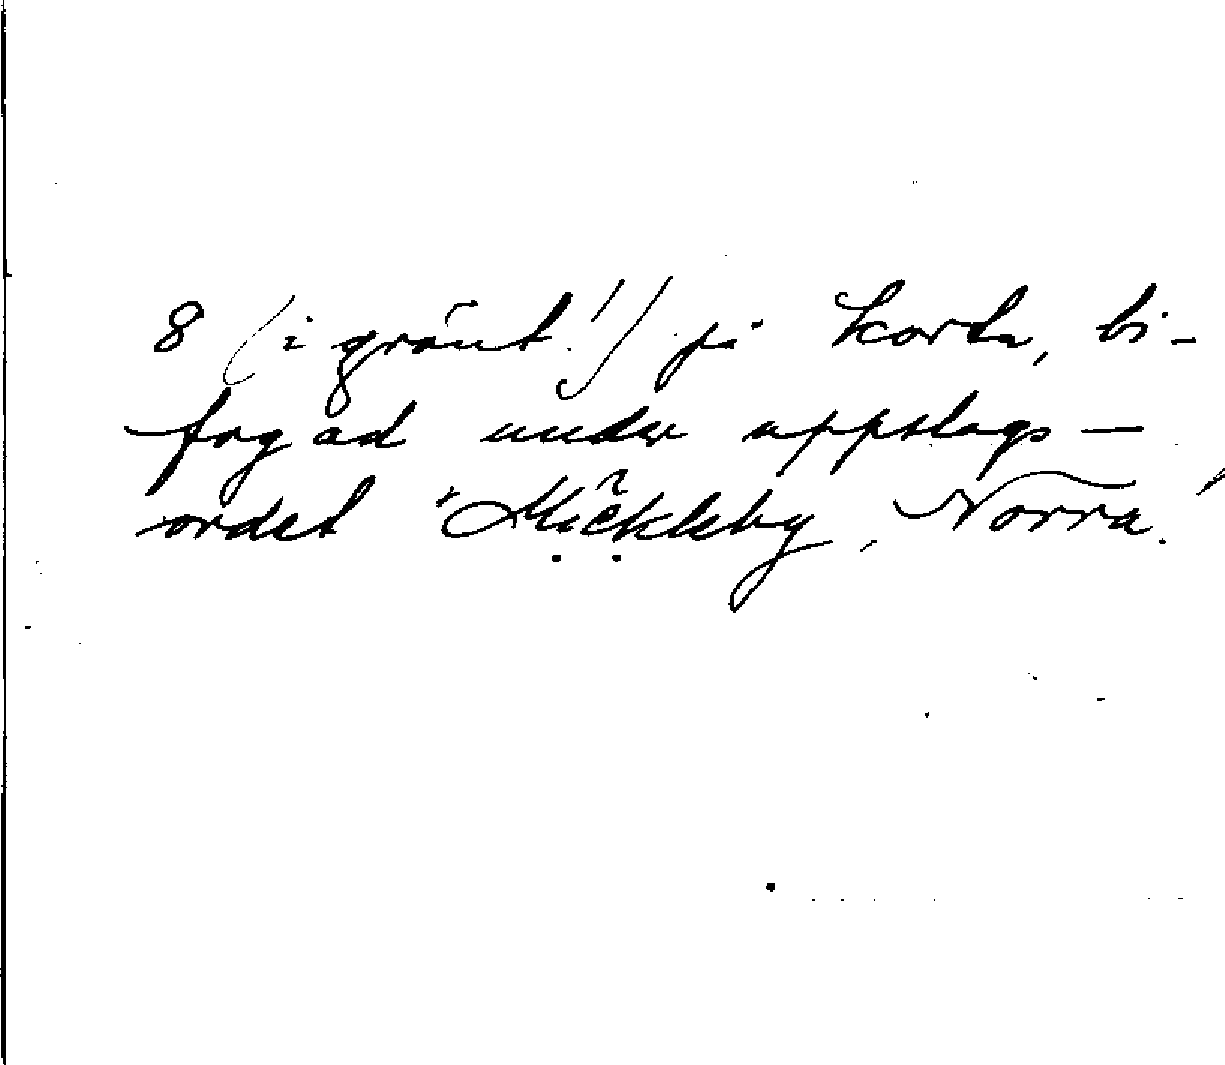 8 (i grönt!) på karta, bi-
fogad under uppslags-
ordet 'Mickleby, Norra'.